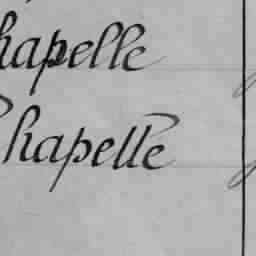 hapelle
Chapelle